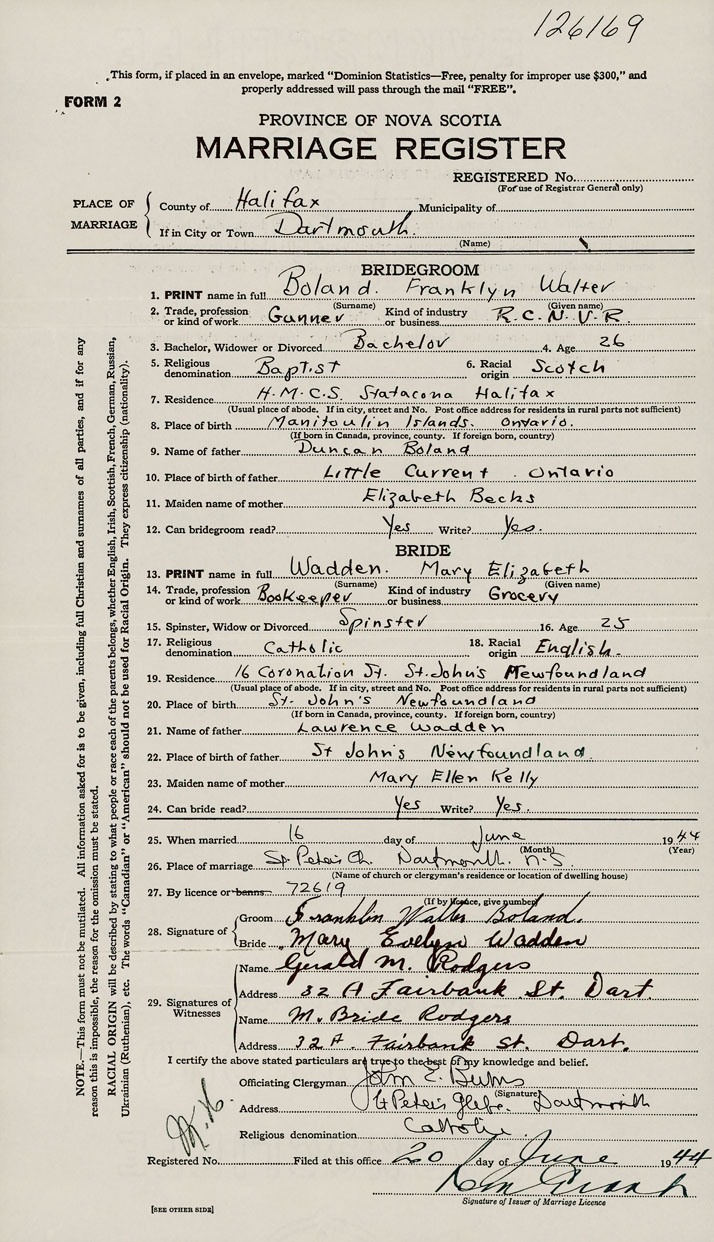 126169
This form, if placed in an envelope, marked "Dominion Statistics—Free, penalty for improper use $300," and
properly addressed will pass through the mail "FREE".
FORM 2
PROVINCE OF NOVA SCOTIA
MARRIAGE REGISTER
REGISTERED No.
(For use of Registrar General only)
PLACE OF MARRIAGE
County of Halifax Municipality of
If in City or Town Dartmouth
(Name)
BRIDEGROOM
1. PRINT name in full Boland. Franklyn Walter
(Surname) (Given name)
2. Trade, profession or kind of work Gunner Kind of industry or business R.C.N.V.R.
3. Bachelor, Widower or Divorced Bachelor 4. Age 26
5. Religious denomination Baptist 6. Racial origin Scotch
7. Residence H.M.C.S. Statacona Halifax
(Usual place of abode. If in city, street and No. Post office address for residents in rural parts not sufficient)
8. Place of birth Manitoulin Islands. Ontario.
(If born in Canada, province, county. If foreign born, country)
9. Name of father Duncan Boland
10. Place of birth of father Little Current Ontario
11. Maiden name of mother Elizabeth Becks
12. Can bridegroom read? Yes Write? Yes.
BRIDE
13. PRINT name in full Wadden. Mary Elizabeth
(Surname) (Given name)
14. Trade, profession or kind of work Bookeeper Kind of industry or business Grocery
15. Spinster, Widow or Divorced Spinster 16. Age 25
17. Religious denomination Catholic 18. Racial origin English.
19. Residence 16 Coronation St. St. John's Newfoundland
(Usual place of abode. If in city, street and No. Post office address for residents in rural parts not sufficient)
20. Place of birth St. John's Newfoundland
(If born in Canada, province, county. If foreign born, country)
21. Name of father Lawrence Wadden
22. Place of birth of father St John's Newfoundland.
23. Maiden name of mother Mary Ellen Kelly
24. Can bride read? Yes Write? Yes.
25. When married 16 day of June 1944
(Month) (Year)
26. Place of marriage St. Peter's Ch. Dartmouth. N.S.
(Name of church or clergyman's residence or location of dwelling house)
27. By licence or banns 72619
(If by licence, give number)
28. Signature of
Groom Franklin Walter Boland.
Bride Mary Evelyn Wadden
29. Signatures of Witnesses
Name Gerald M. Rodgers
Address 32 A Fairbank St. Dart.
Name M. Bride Rodgers
Address 32A. Fairbank St. Dart.
I certify the above stated particulars are true to the best of my knowledge and belief.
Officiating Clergyman John E. Burns
(Signature)
Address St Peter's Glebe. Dartmouth
Religious denomination Catholic
Registered No. Filed at this office 20 day of June 1944
Signature of Issuer of Marriage Licence
[SEE OTHER SIDE]
NOTE.—This form must not be mutilated. All information asked for is to be given, including full Christian and surnames of all parties, and if for any
reason this is impossible, the reason for the omission must be stated.
RACIAL ORIGIN will be described by stating to what people or race each of the parents belongs, whether English, Irish, Scottish, French, German, Russian,
Ukrainian (Ruthenian), etc. The words "Canadian" or "American" should not be used for Racial Origin. They express citizenship (nationality).